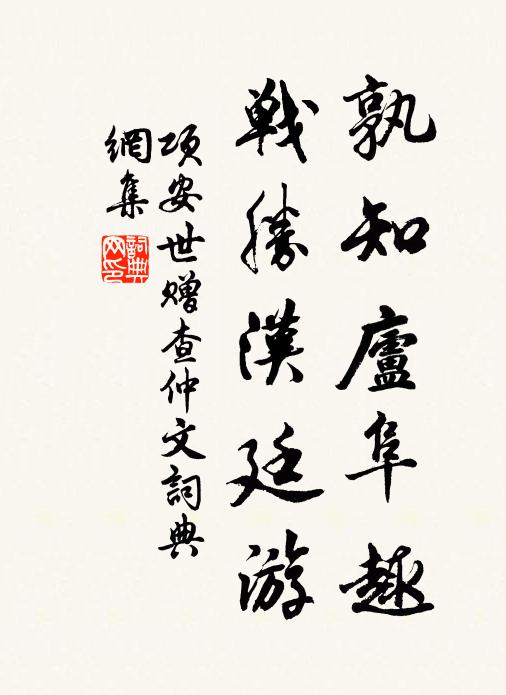 孰知廬阜趣
戦勝漢廷游
项安世赠查仲文詞典
網集
詞典
网印